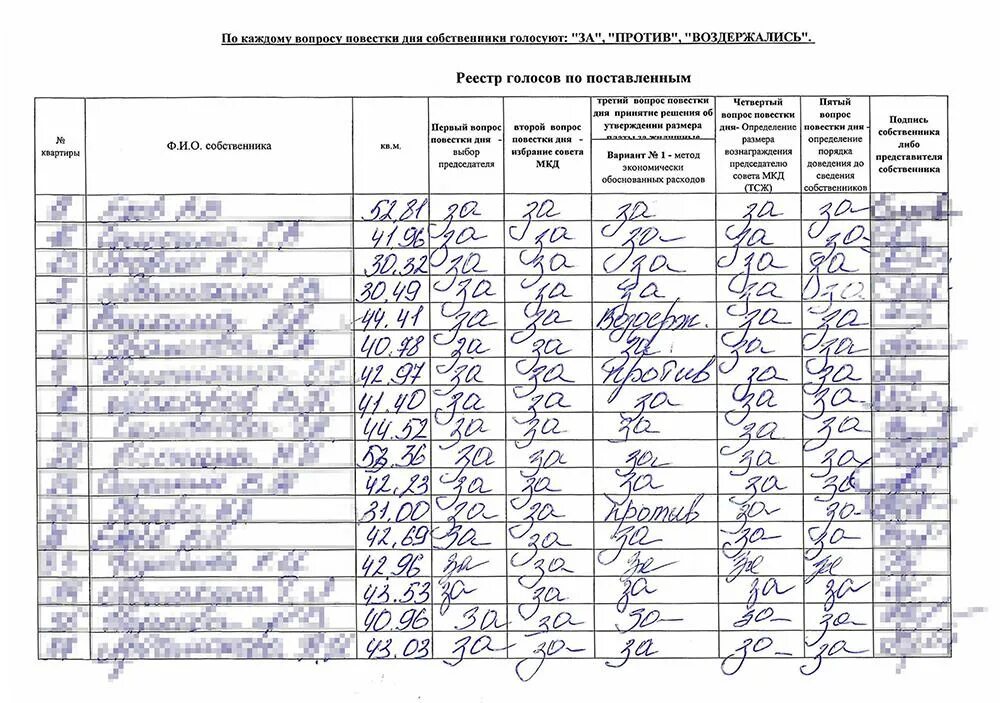 По каждому вопросу повестки дня собственники голосуют: "ЗА", "ПРОТИВ", "ВОЗДЕРЖАЛИСЬ".
Реестр голосов по поставленным
№ квартиры
Ф.И.О. собственника
кв.м.
Первый вопрос повестки дня - выбор председателя
второй вопрос повестки дня - избрание совета МКД
третий вопрос повестки дня принятие решения об утверждении размера
Вариант № 1 - метод экономически обоснованных расходов
Четвертый вопрос повестки дня- Определение размера вознаграждения председателю совета МКД (ТСЖ)
Пятый вопрос повестки дня - определение порядка доведения до сведения собственников
Подпись собственника либо представителя собственника
52,81 за за за за за
41.96 за за за за за
30.32 за за за за за
30.49 за за за за за
44.41 за за Воздерж. за за
40.78 за за за за за
42.97 за за против за за
41.40 за за за за за
44.52 за за за за за
52.36 за за за за за
42.23 за за за за за
31.00 за за против за за
42,69 за за за за за
42.96 за за за за за
43.53 за за за за за
40.96 за за за за за
43.03 за за за за за